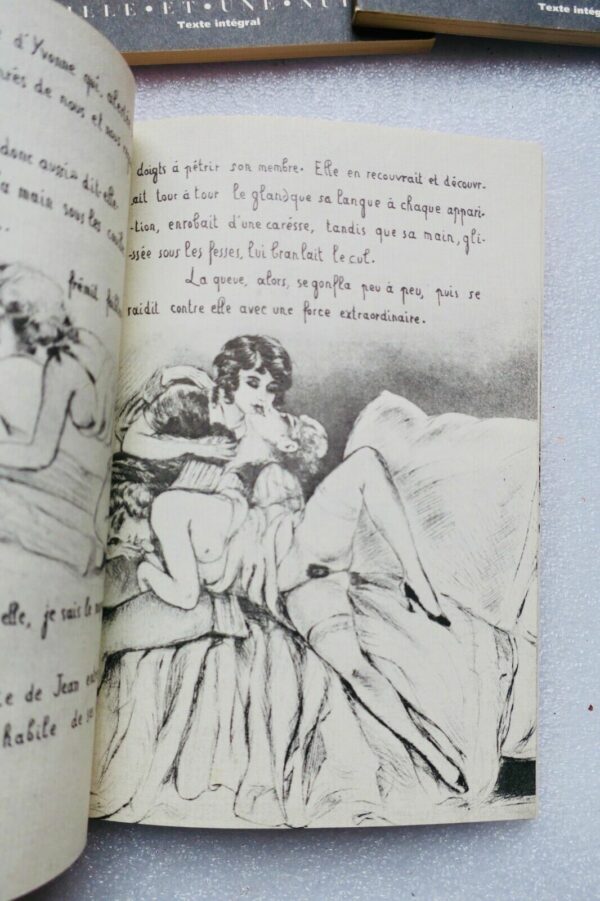 ILLE • ET • UNE • NUI
Texte intégral
Texte intégral
e d'Yvonne qui, alors
près de nous et nous
donc aussi » dit-elle
la main sous les couilles
..
frémit
elle, je sais le
te de Jean
habile de se
doigts à pétrir son membre. Elle en recouvrait et découvr-
ait tour à tour le gland que sa langue à chaque appari-
-tion, enrobait d'une carèsse, tandis que sa main, gli-
-ssée sous les fesses, lui branlait le cul.
La queue, alors, se gonfla peu à peu, puis se
raidit contre elle avec une force extraordinaire.